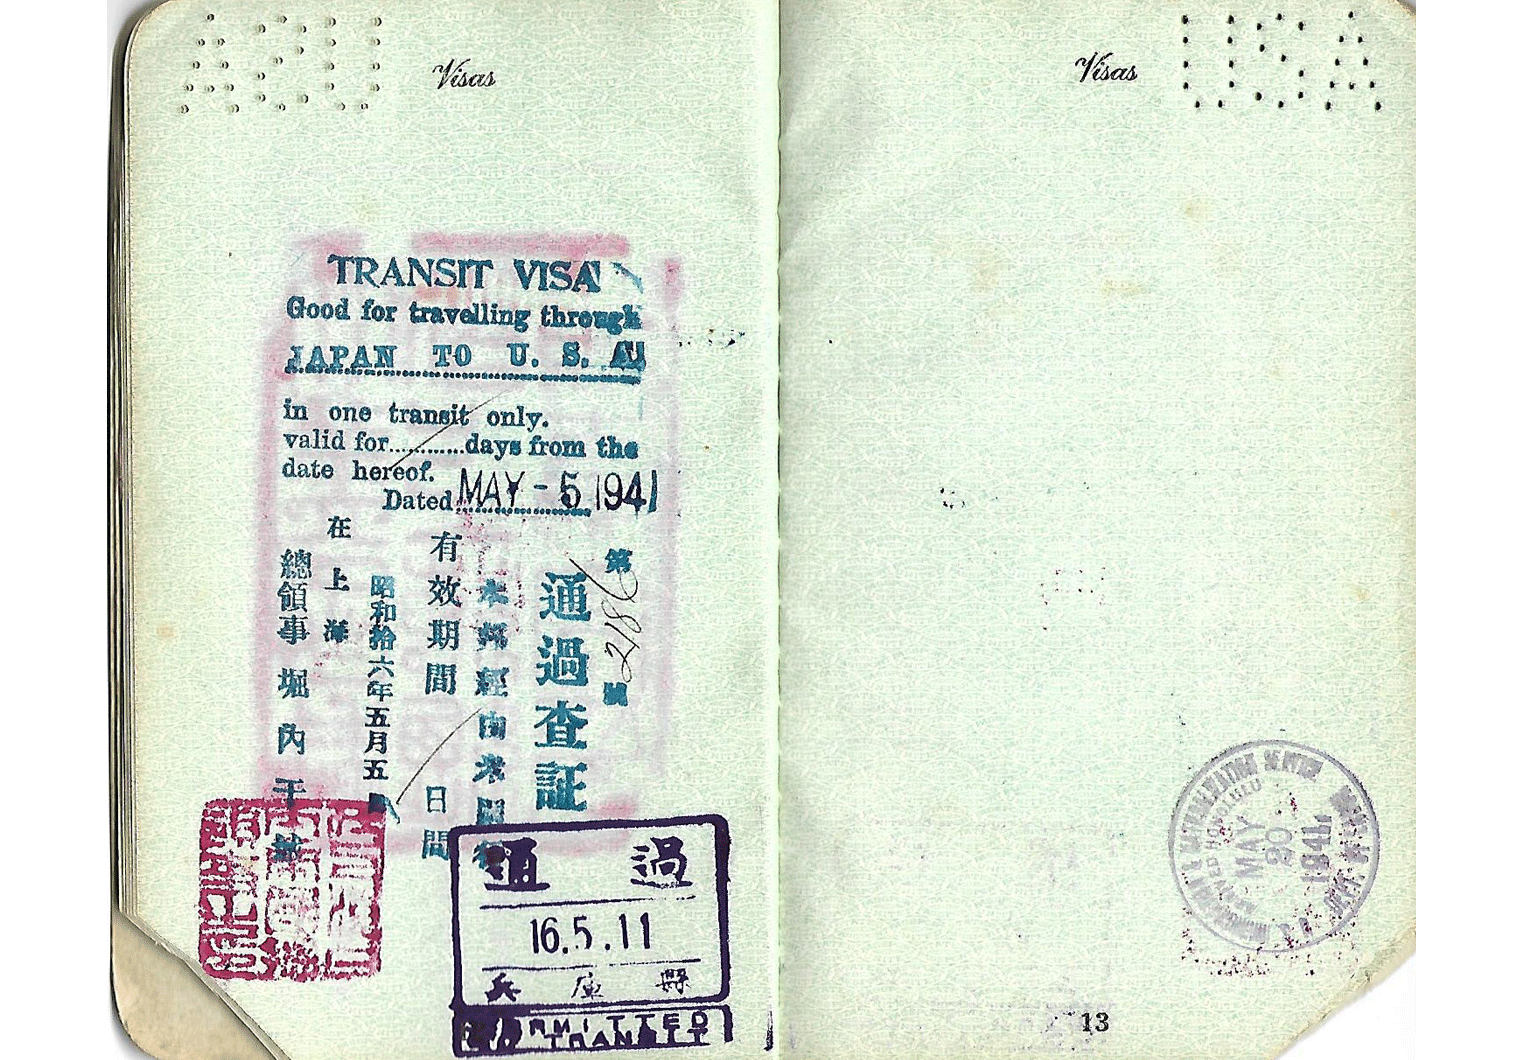 Visas
TRANSIT VISA
Good for travelling through
JAPAN TO U. S. A.
in one transit only.
valid for............days from the
date hereof.
Dated MAY - 5 1941
第 2186 號
通過査証
有效期間 日間
昭和拾六年五月五
在上海
總領事 堀内干城
通過
16.5.11
兵庫縣
PERMITTED
TRANSIT
Visas
USA
IMMIGRATION & NATURALIZATION SERVICE
HONOLULU
MAY
20
1941
13